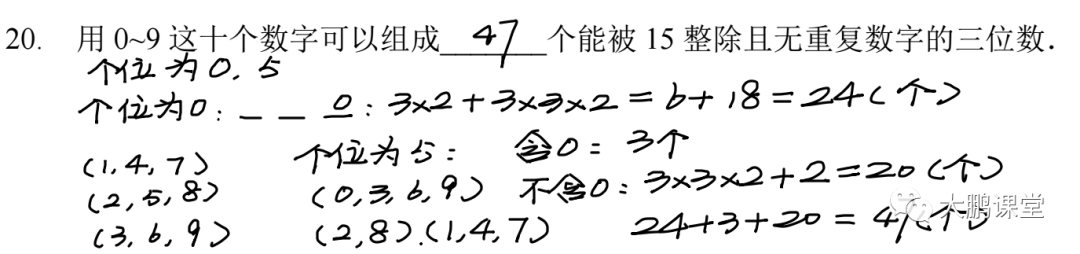 20. 用 0~9 这十个数字可以组成 47 个能被 15 整除且无重复数字的三位数.
个位为0, 5
个位为0: _ _ 0 : 3×2+3×3×2=6+18=24(个)
(1, 4, 7) 个位为5: 含0: 3个
(2, 5, 8) (0, 3, 6, 9) 不含0: 3×3×2+2=20(个)
(3, 6, 9) (2, 8).(1, 4, 7) 24+3+20=47(个)
大鹏课堂